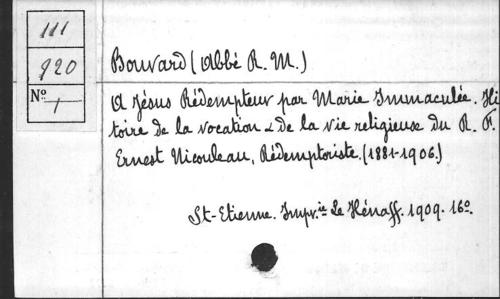 111
920
N° 1
Bouvard (Abbé R. M.)
A Jésus Rédempteur par Marie Immaculée. His
toire de la vocation & de la vie religieuse du R. F.
Ernest Nicouleau, Rédemptoriste. (1881-1906.)
St-Etienne. Impr.ie Le Hénaff. 1909. 16°.